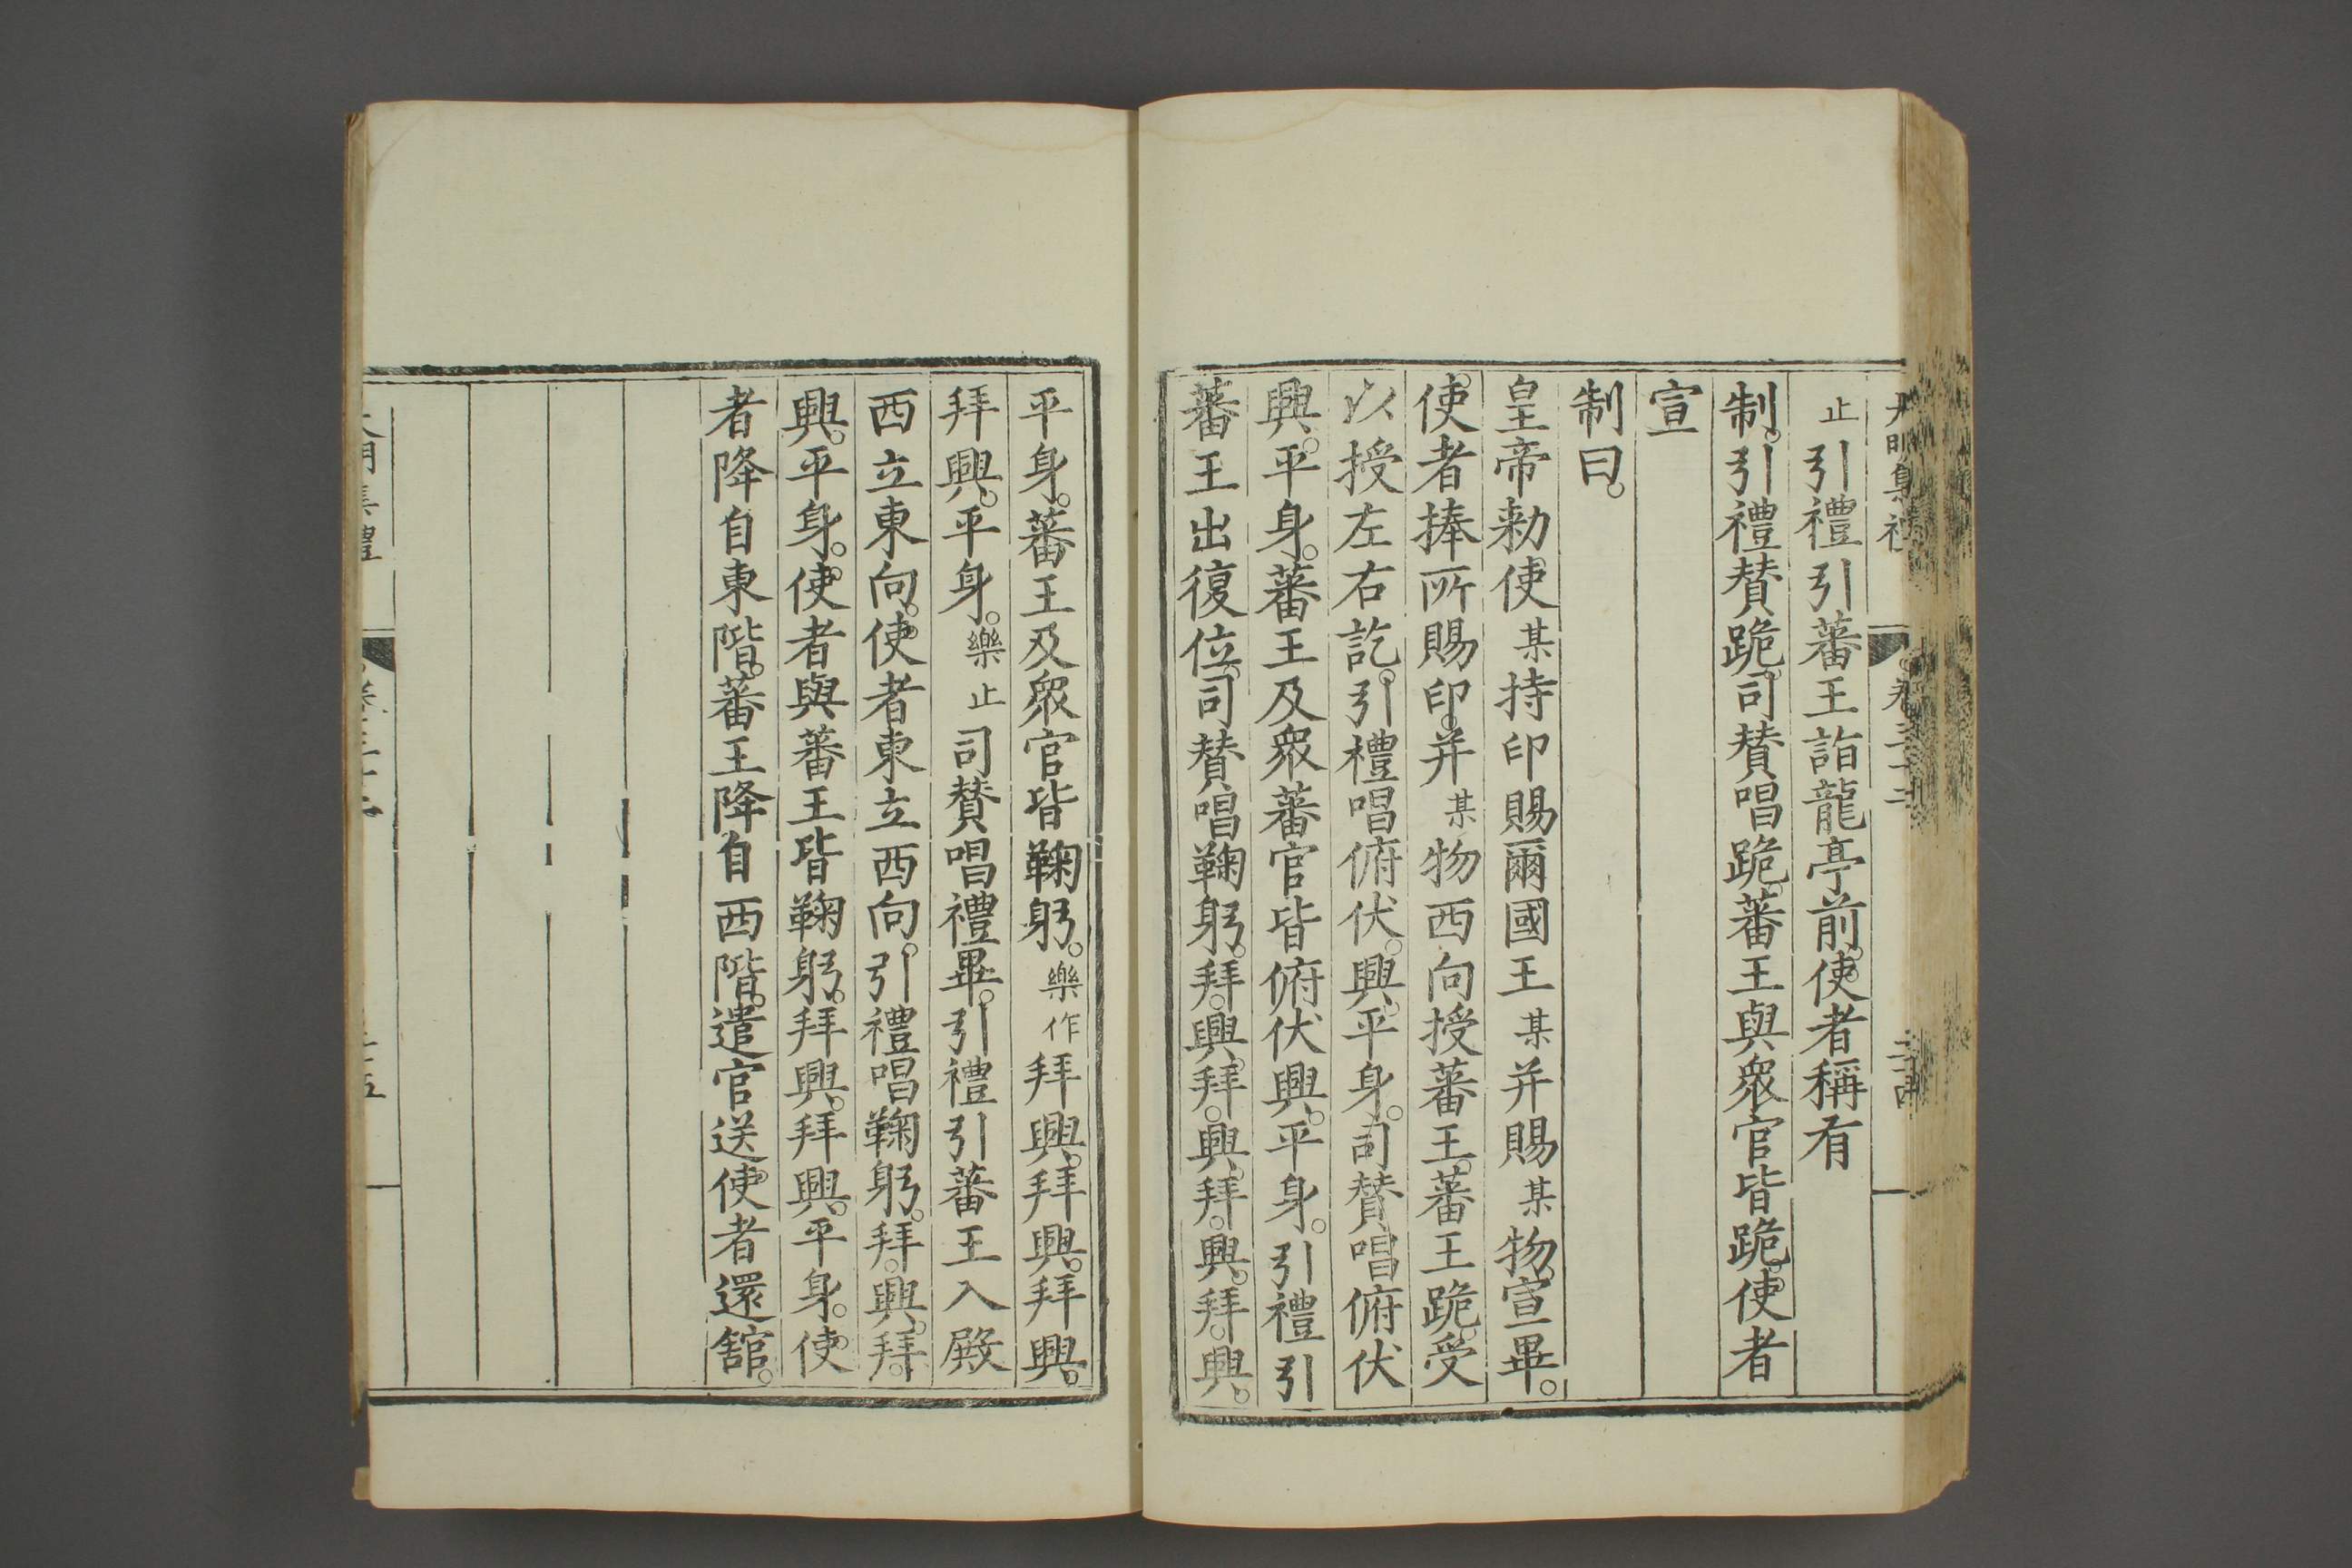 止引禮引蕃王詣龍亭前。使者稱有
制。引禮賛跪。司賛唱跪。蕃王與衆官皆跪。使者
宣
制曰。
皇帝勑。使某持印賜爾國王某并賜某物。宣畢。
使者捧所賜印。并某物西向授蕃王。蕃王跪。受
以授左右訖。引禮唱俯伏。興。平身。司賛唱俯伏
興。平身。蕃王及衆蕃官皆俯伏興。平身。引禮引
蕃王出復位。司賛唱鞠躬。拜。興。拜。興。拜。興。拜。興。
平身。蕃王及衆官皆鞠躬。樂作拜興。拜興。拜興。
拜興。平身。樂止司賛唱禮畢。引禮引蕃王入殿
西立東向。使者東立西向。引禮唱鞠躬。拜。興。拜。
興。平身。使者與蕃王皆鞠躬。拜興。拜興。平身。使
者降自東階。蕃王降自西階。遣官送使者還舘。